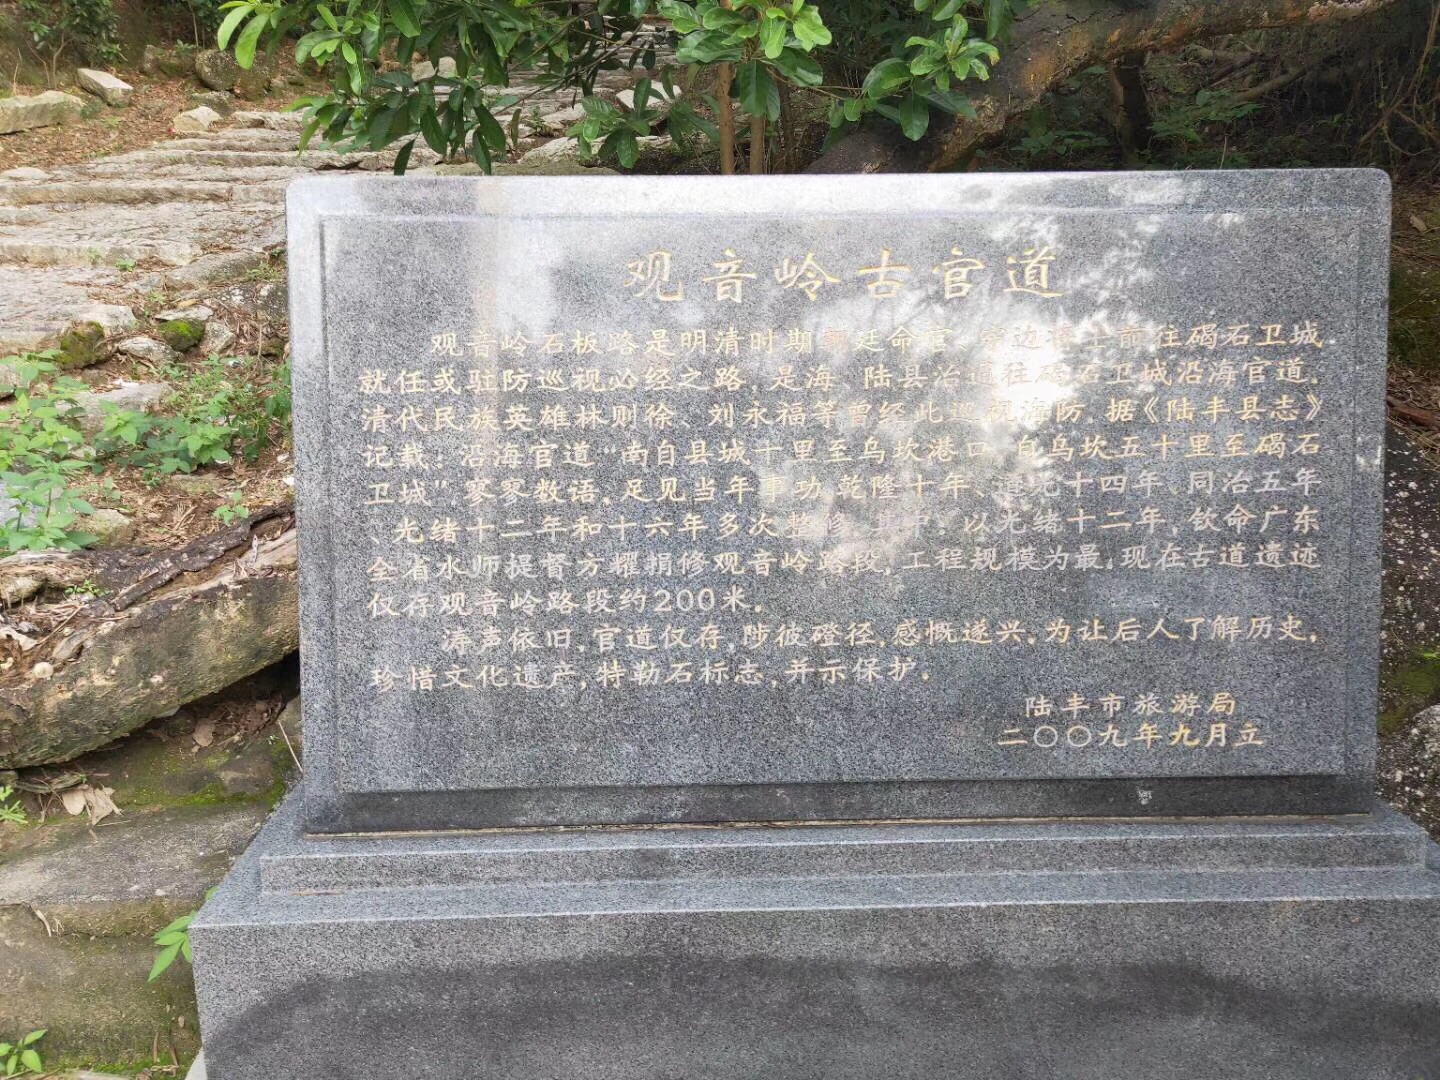 观音岭古官道
观音岭石板路是明清时期朝廷命官、守边将士前往碣石卫城
就任或驻防巡视必经之路，是海、陆县治通往碣石卫城沿海官道。
清代民族英雄林则徐、刘永福等曾经此巡视海防。据《陆丰县志》
记载：沿海官道“南自县城十里至乌坎港口，自乌坎五十里至碣石
卫城”，寥寥数语，足见当年事功。乾隆十年、道光十四年、同治五年
、光绪十二年和十六年多次整修，其中，以光绪十二年，钦命广东
全省水师提督方耀捐修观音岭路段，工程规模为最。现在古道遗迹
仅存观音岭路段约200米。
涛声依旧，官道仅存，陟彼磴径，感慨遂兴，为让后人了解历史，
珍惜文化遗产，特勒石标志，并示保护。
陆丰市旅游局
二〇〇九年九月立